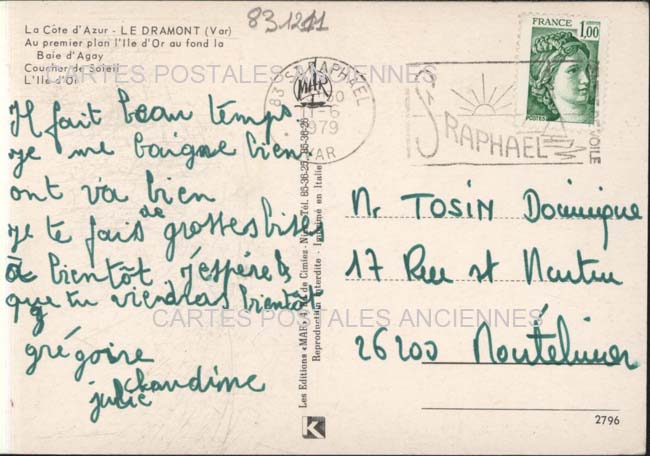 83.1211
La Côte d'Azur - LE DRAMONT (Var)
Au premier plan l'Ile d'Or au fond la
Baie d'Agay
Coucher de Soleil
L'Ile d'Or
CARTES POSTALES ANCIENNES
83 ST RAPHAEL
1-6
1979
VAR
ST RAPHAEL
VOILE
FRANCE
1,00
POSTES
Il fait beau temps
je me baigne bien
ont va bien
je te fais de grosses bises
à bientôt j'espère
que tu viendras bientôt
grégoire
claudine
julie
Mr TOSIN Dominique
17 Rue st Martin
26200 Montélimar
CARTES POSTALES ANCIENNES
Les Editions «MAR» rue de Cimiez - Nice - Tél.
Reproduction interdite - Imprimé en Italie
K
2796